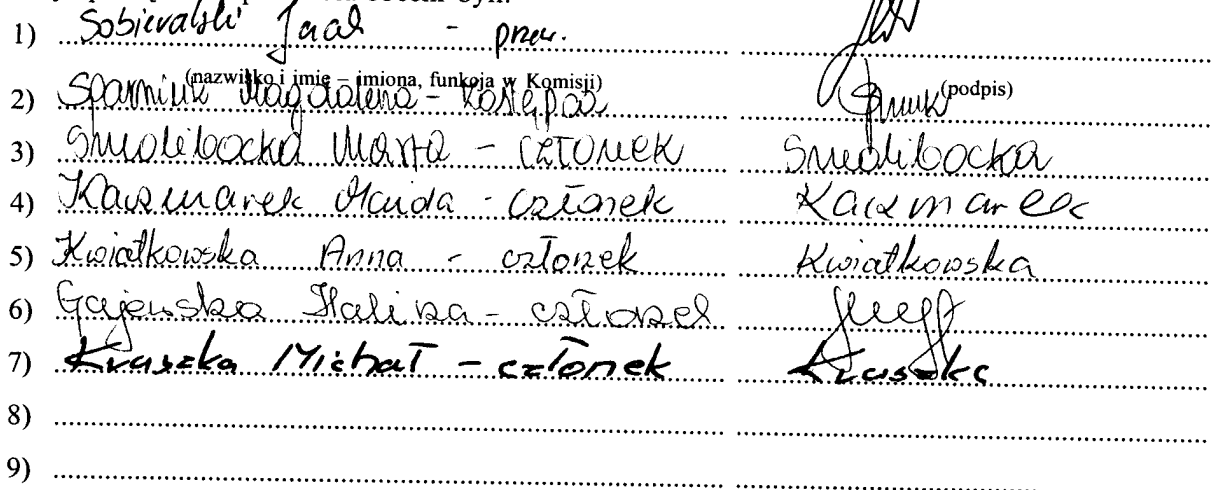 1) Sobieralski Jacek - przew.
(nazwisko i imię – imiona, funkcja w Komisji) (podpis)
2) Magdalena - zastępca
3) Smolibocka Marta - członek Smolibocka
4) Kaczmarek - członek Kaczmarek
5) Kwiatkowska Anna - członek Kwiatkowska
6) Gajewska Halina - członek
7) Kruszka Michał - członek Kruszka
8)
9)